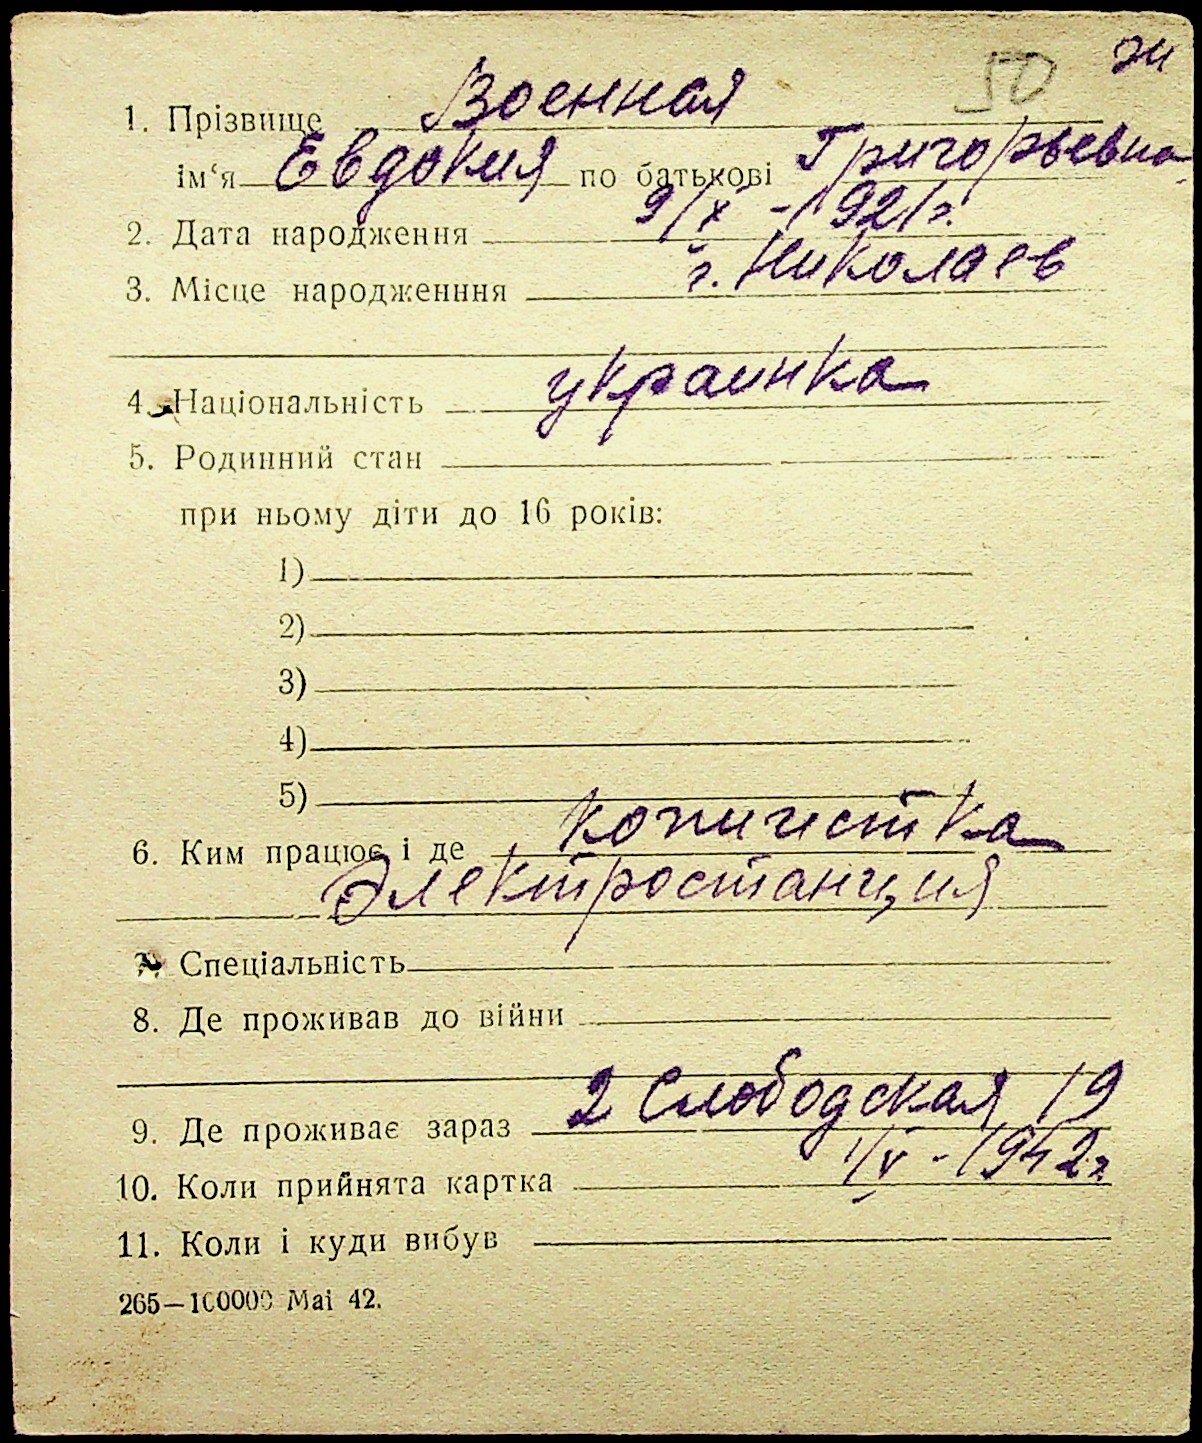 50 зи
1. Прізвище Военная
ім‘я Евдокия по батькові Григорьевна
2. Дата народження 9/X - 1921г.
3. Місце народженння г. Николаев
4. Національність украинка
5. Родинний стан
при ньому діти до 16 років:
1)
2)
3)
4)
5)
6. Ким працює і де копиистка
Электростанция
7. Спеціальність
8. Де проживав до війни
9. Де проживає зараз 2 Слободская 19
10. Коли прийнята картка 1/V - 1942г
11. Коли і куди вибув
265—100000 Mai 42.